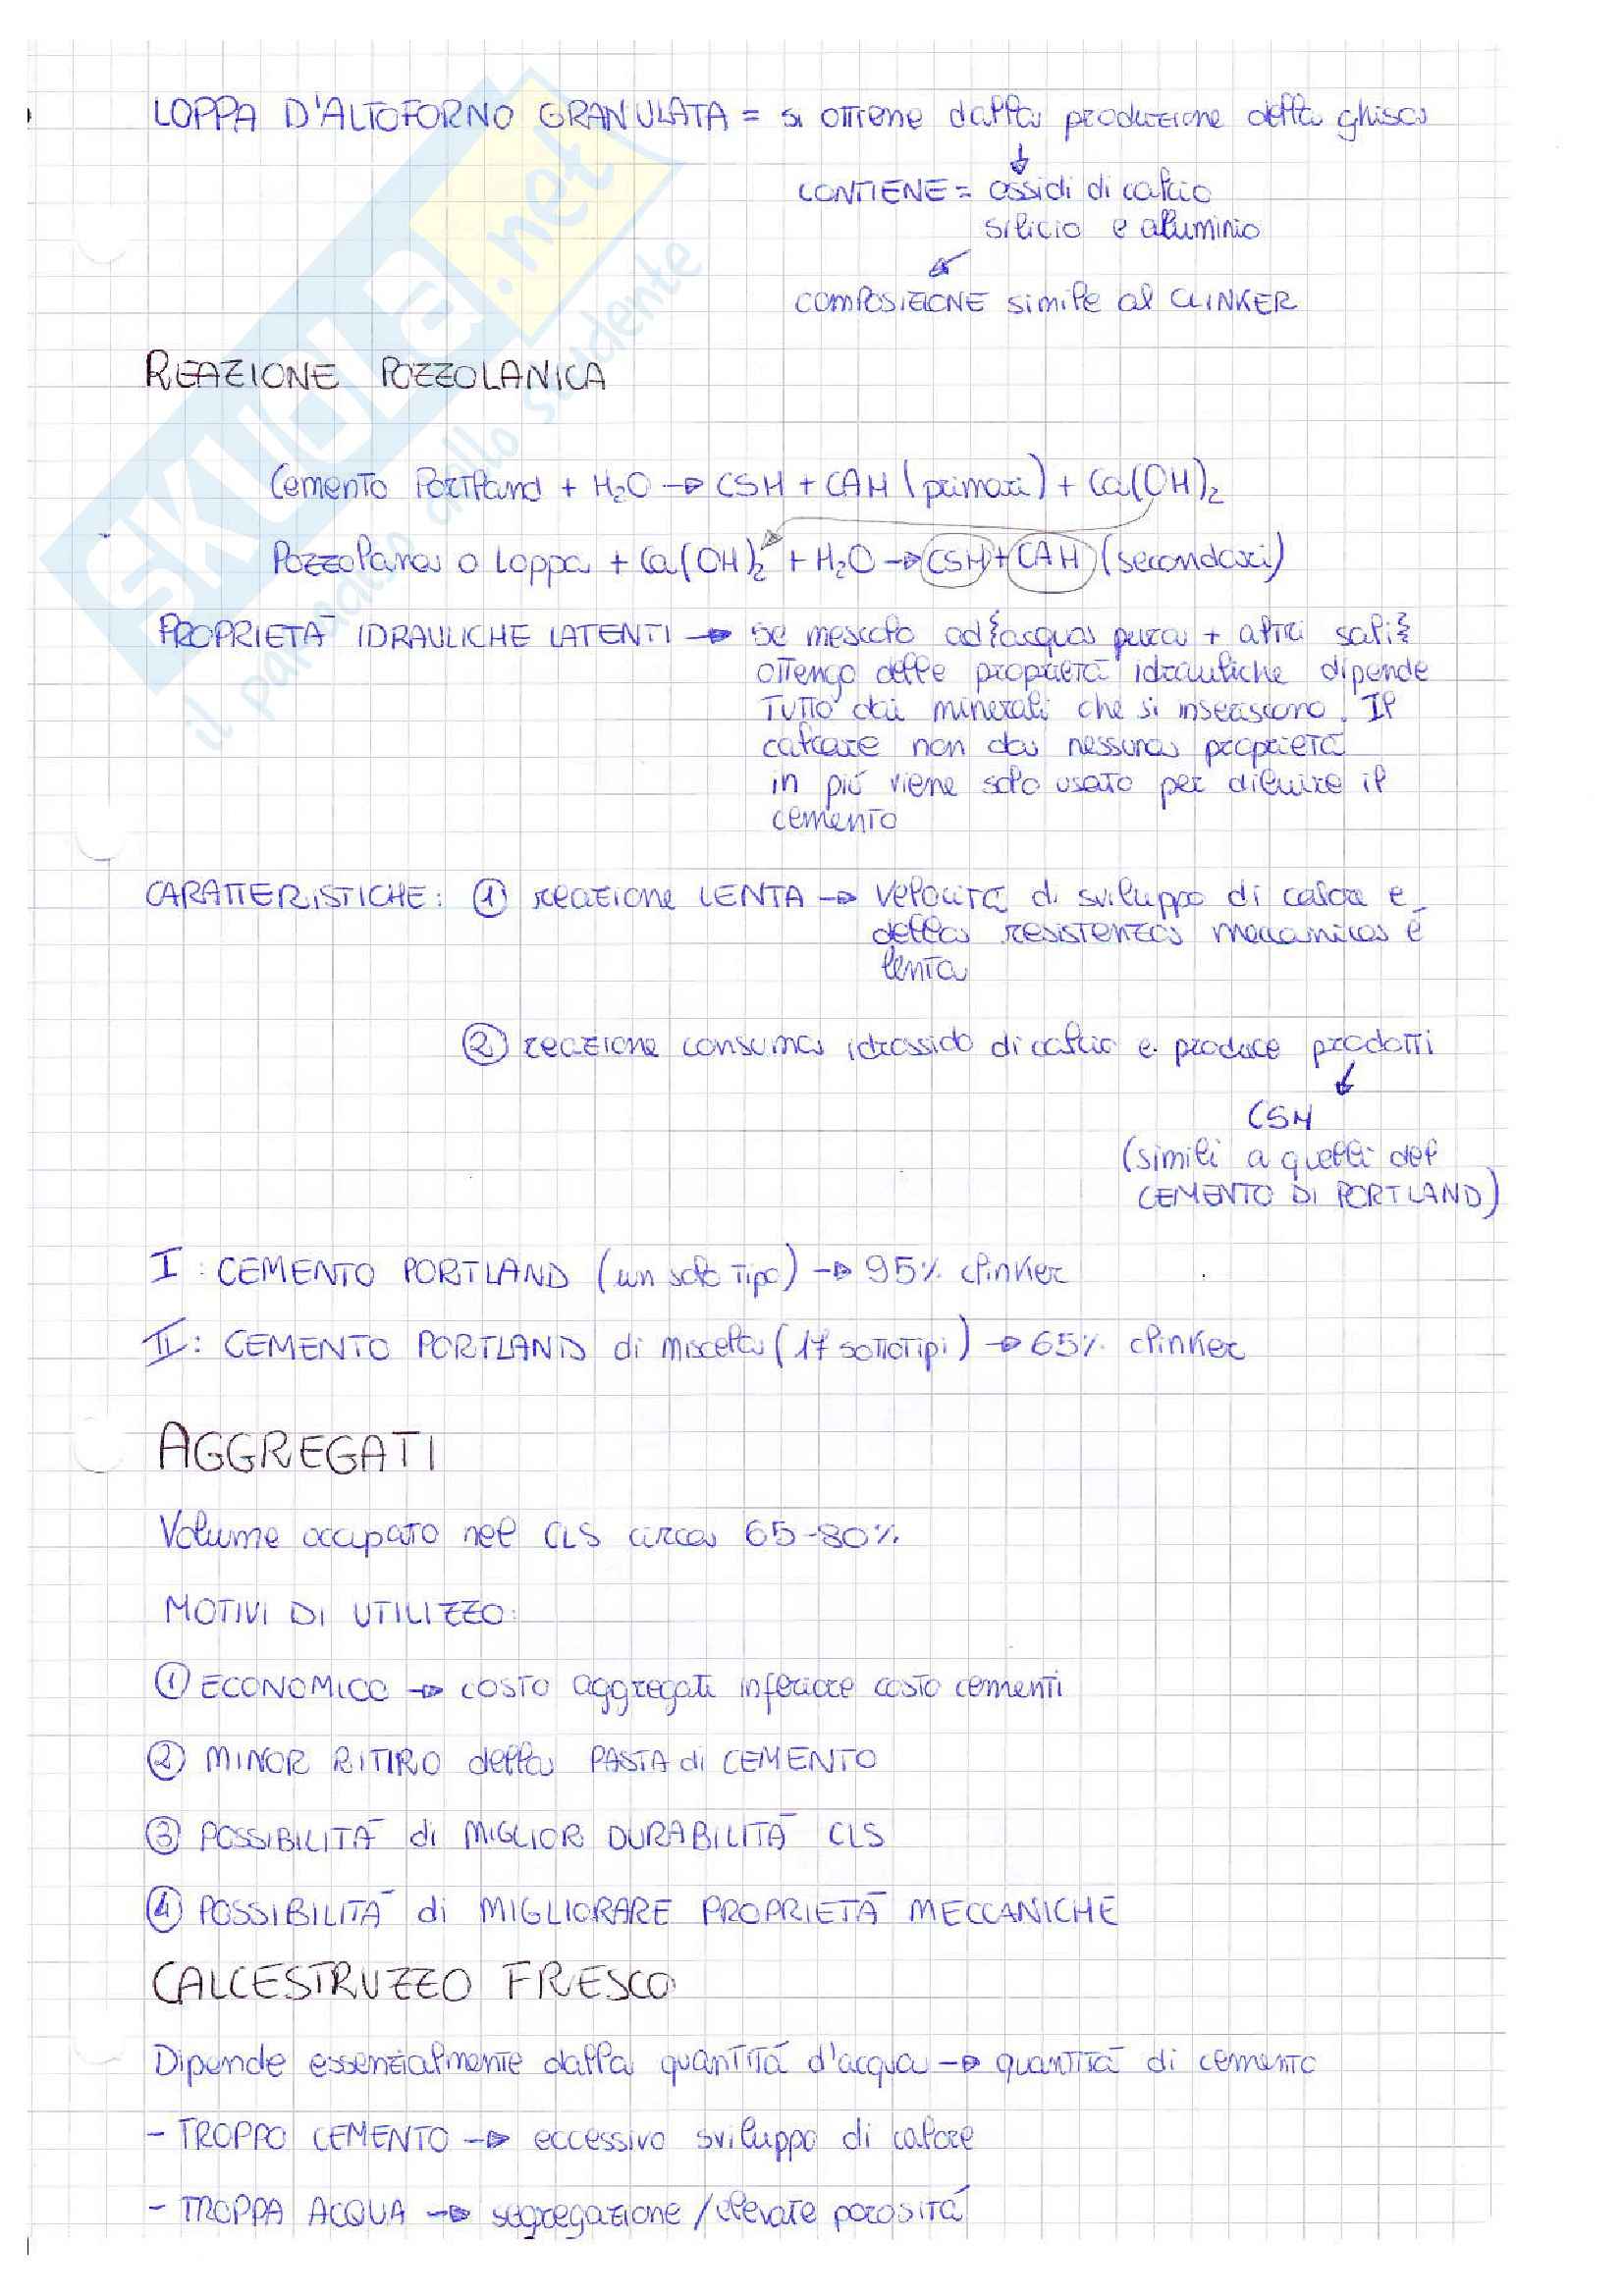 LOPPA D'ALTOFORNO GRANULATA = si ottiene dalla produzione della ghisa
↓
CONTIENE = ossidi di calcio
silicio e alluminio
↙
COMPOSIZIONE simile al CLINKER
REAZIONE POZZOLANICA
Cemento Portland + H₂O → CSH + CAH (primari) + Ca(OH)₂
Pozzolana o Loppa + Ca(OH)₂ + H₂O → CSH + CAH (secondari)
PROPRIETÀ IDRAULICHE LATENTI → se mescolo ad {acqua pura + altri sali}
ottengo delle proprietà idrauliche dipende
tutto dai minerali che si inseriscono. Il
calcare non da nessuna proprietà
in più viene solo usato per diluire il
cemento
CARATTERISTICHE: ① reazione LENTA → velocità di sviluppo di calore e
della resistenza meccanica è
lenta
② reazione consuma idrossido di calcio e produce prodotti
↓
CSH
(simili a quelli del
CEMENTO DI PORTLAND)
I : CEMENTO PORTLAND (un solo tipo) → 95% clinker
II : CEMENTO PORTLAND di miscela (17 sottotipi) → 65% clinker
AGGREGATI
Volume occupato nel CLS circa 65-80%
MOTIVI DI UTILIZZO:
① ECONOMICO → costo aggregati inferiore costo cementi
② MINOR RITIRO della PASTA di CEMENTO
③ POSSIBILITÀ di MIGLIOR DURABILITÀ CLS
④ POSSIBILITÀ di MIGLIORARE PROPRIETÀ MECCANICHE
CALCESTRUZZO FRESCO
Dipende essenzialmente dalla quantità d'acqua → quantità di cemento
- TROPPO CEMENTO → eccessivo sviluppo di calore
- TROPPA ACQUA → segregazione / elevate porosità
SKUOLA.net
il paradiso dello studente